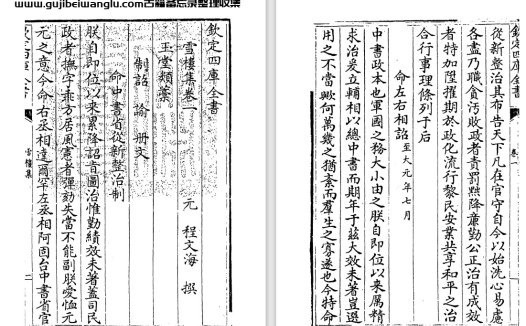 www.gujibeiwanglu.com古籍备忘录整理收集
欽定四庫全書
雪樓集卷一
元 程文海 撰
玉堂類藁
制詔 諭 冊文
命中書省從新整治制
朕自即位以來累降詔旨圖治惟勤績效未著蓋司民
政者撫字乖方居風憲者彈劾失當不能副朕愛恤元
元之意今命右丞相達爾罕左丞相阿固台中書省官
雪樓集
欽定四庫全書
卷一
從新整治其布告天下凡在官守自今以始洗心易慮
各盡乃職貪汚敗政者責罰黜降廉勤公正治有成效
者特加陞擢期於政化流行黎民安業共享和平之治
合行事理條列于后
命左右相詔至大元年七月
中書政本也軍國之務大小由之朕自即位以來厲精
求治爰立輔相以總中書而期年于兹大效未著豈選
用之不當歟何萬幾之猶紊而羣生之寡遂也今特命